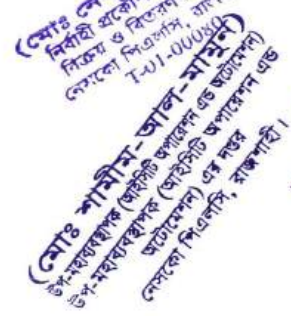 (মোঃ
নির্বাহী
বিক্রয় ও বিতরণ
নেসকো পিএলসি,
T-01-00080
(মোঃ শামীম-আল-মামুন)
উপ-মহাব্যবস্থাপক (আইসিটি অপারেশন এন্ড অটোমেশন)
উপ-মহাব্যবস্থাপক (আইসিটি অপারেশন এন্ড
অটোমেশন) এর দপ্তর
নেসকো পিএলসি, রাজশাহী।